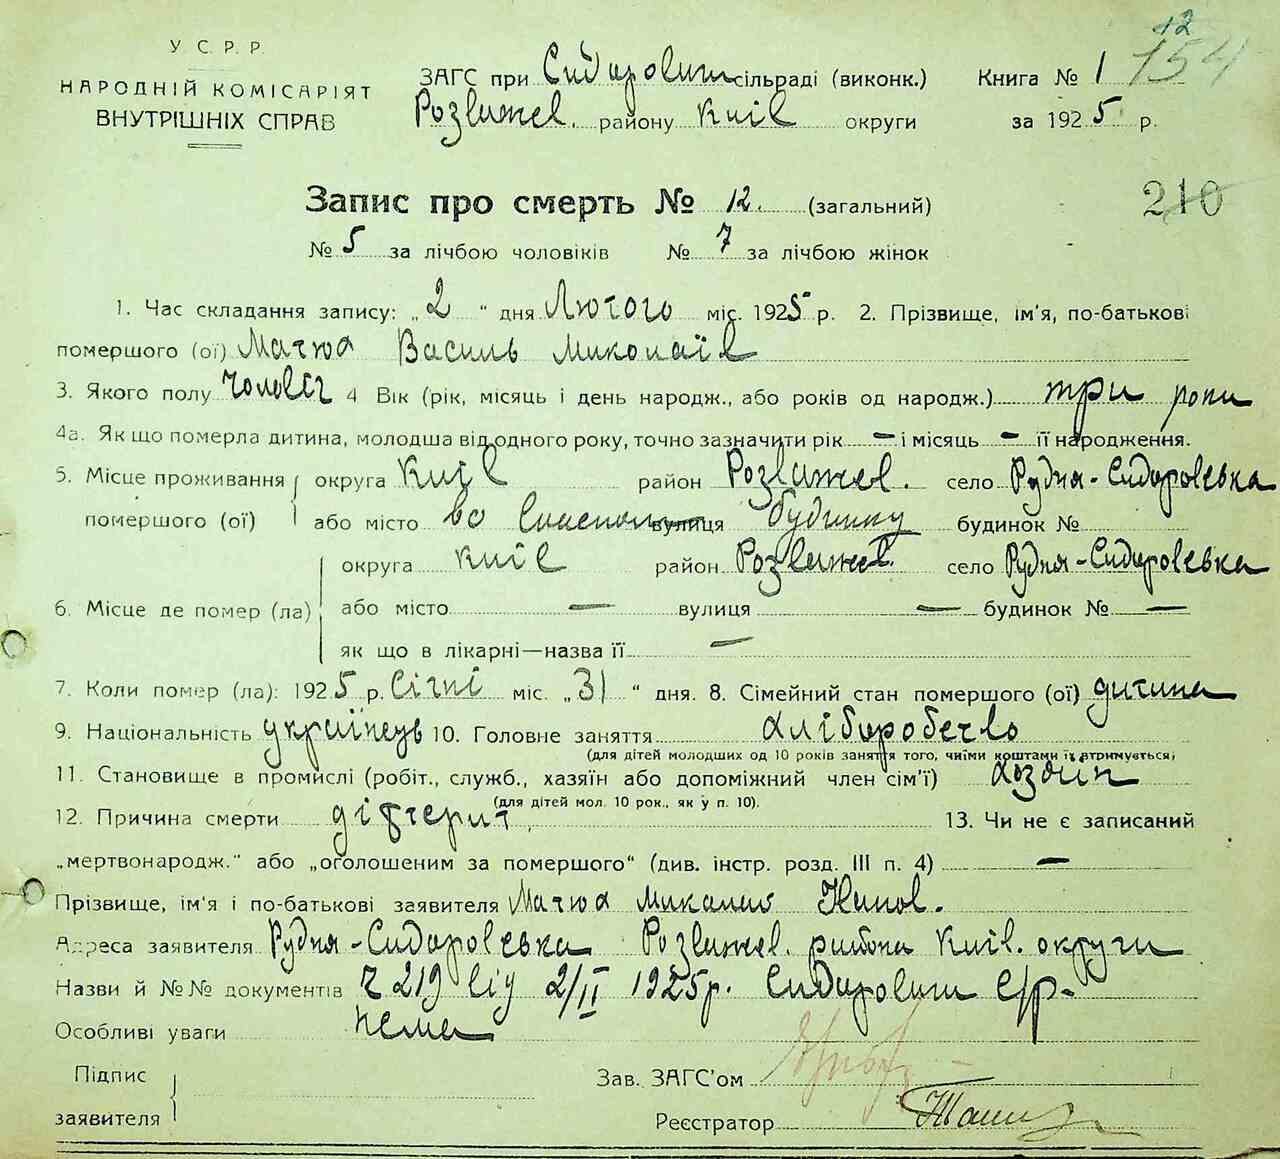 12
154
У. С. Р. Р.
НАРОДНІЙ КОМІСАРІЯТ
ВНУТРІШНІХ СПРАВ
ЗАГС при Сидорович сільраді (виконк.) Книга № 1
Розважев. району Київ округи за 1925 р.
210
Запис про смерть № 12. (загальний)
№ 5 за лічбою чоловіків № 7 за лічбою жінок
1. Час складання запису: „2“ дня Лютого міс. 1925 р. 2. Прізвище, ім'я, по-батькові
помершого (ої) Матюха Василь Миколаїв
3. Якого полу чоловіч 4 Вік (рік, місяць і день народж., або років од народж.) три роки
4а. Як що померла дитина, молодша від одного року, точно зазначити рік — і місяць — її народження.
5. Місце проживання округа Київ район Розважев. село Рудня-Сидоровська
помершого (ої) або місто во вулиця будинку будинок №
округа Київ район Розважев. село Рудня-Сидоровська
6. Місце де помер (ла) або місто — вулиця — будинок № —
як що в лікарні—назва її —
7. Коли помер (ла): 1925 р. Січні міс. „31“ дня. 8. Сімейний стан помершого (ої) дитина
9. Національність українець 10. Головне заняття хліборобство
(для дітей молодших од 10 років заняття того, чиїми коштами їх втримується)
11. Становище в промислі (робіт., служб., хазяїн або допоміжний член сім'ї) хазяін
(для дітей мол. 10 рок., як у п. 10).
12. Причина смерти діфтерит 13. Чи не є записаний
„мертвонародж.“ або „оголошеним за помершого“ (див. інстр. розд. III п. 4) —
Прізвище, ім'я і по-батькові заявителя Матюха Миколай
Адреса заявителя Рудня-Сидоровська Розважев. района Київ. округи
Назви й №№ документів ч 219 від 2/II 1925р. Сидорович с/р-
Особливі уваги нема
Підпис
заявителя
Зав. ЗАГС'ом
Реєстратор